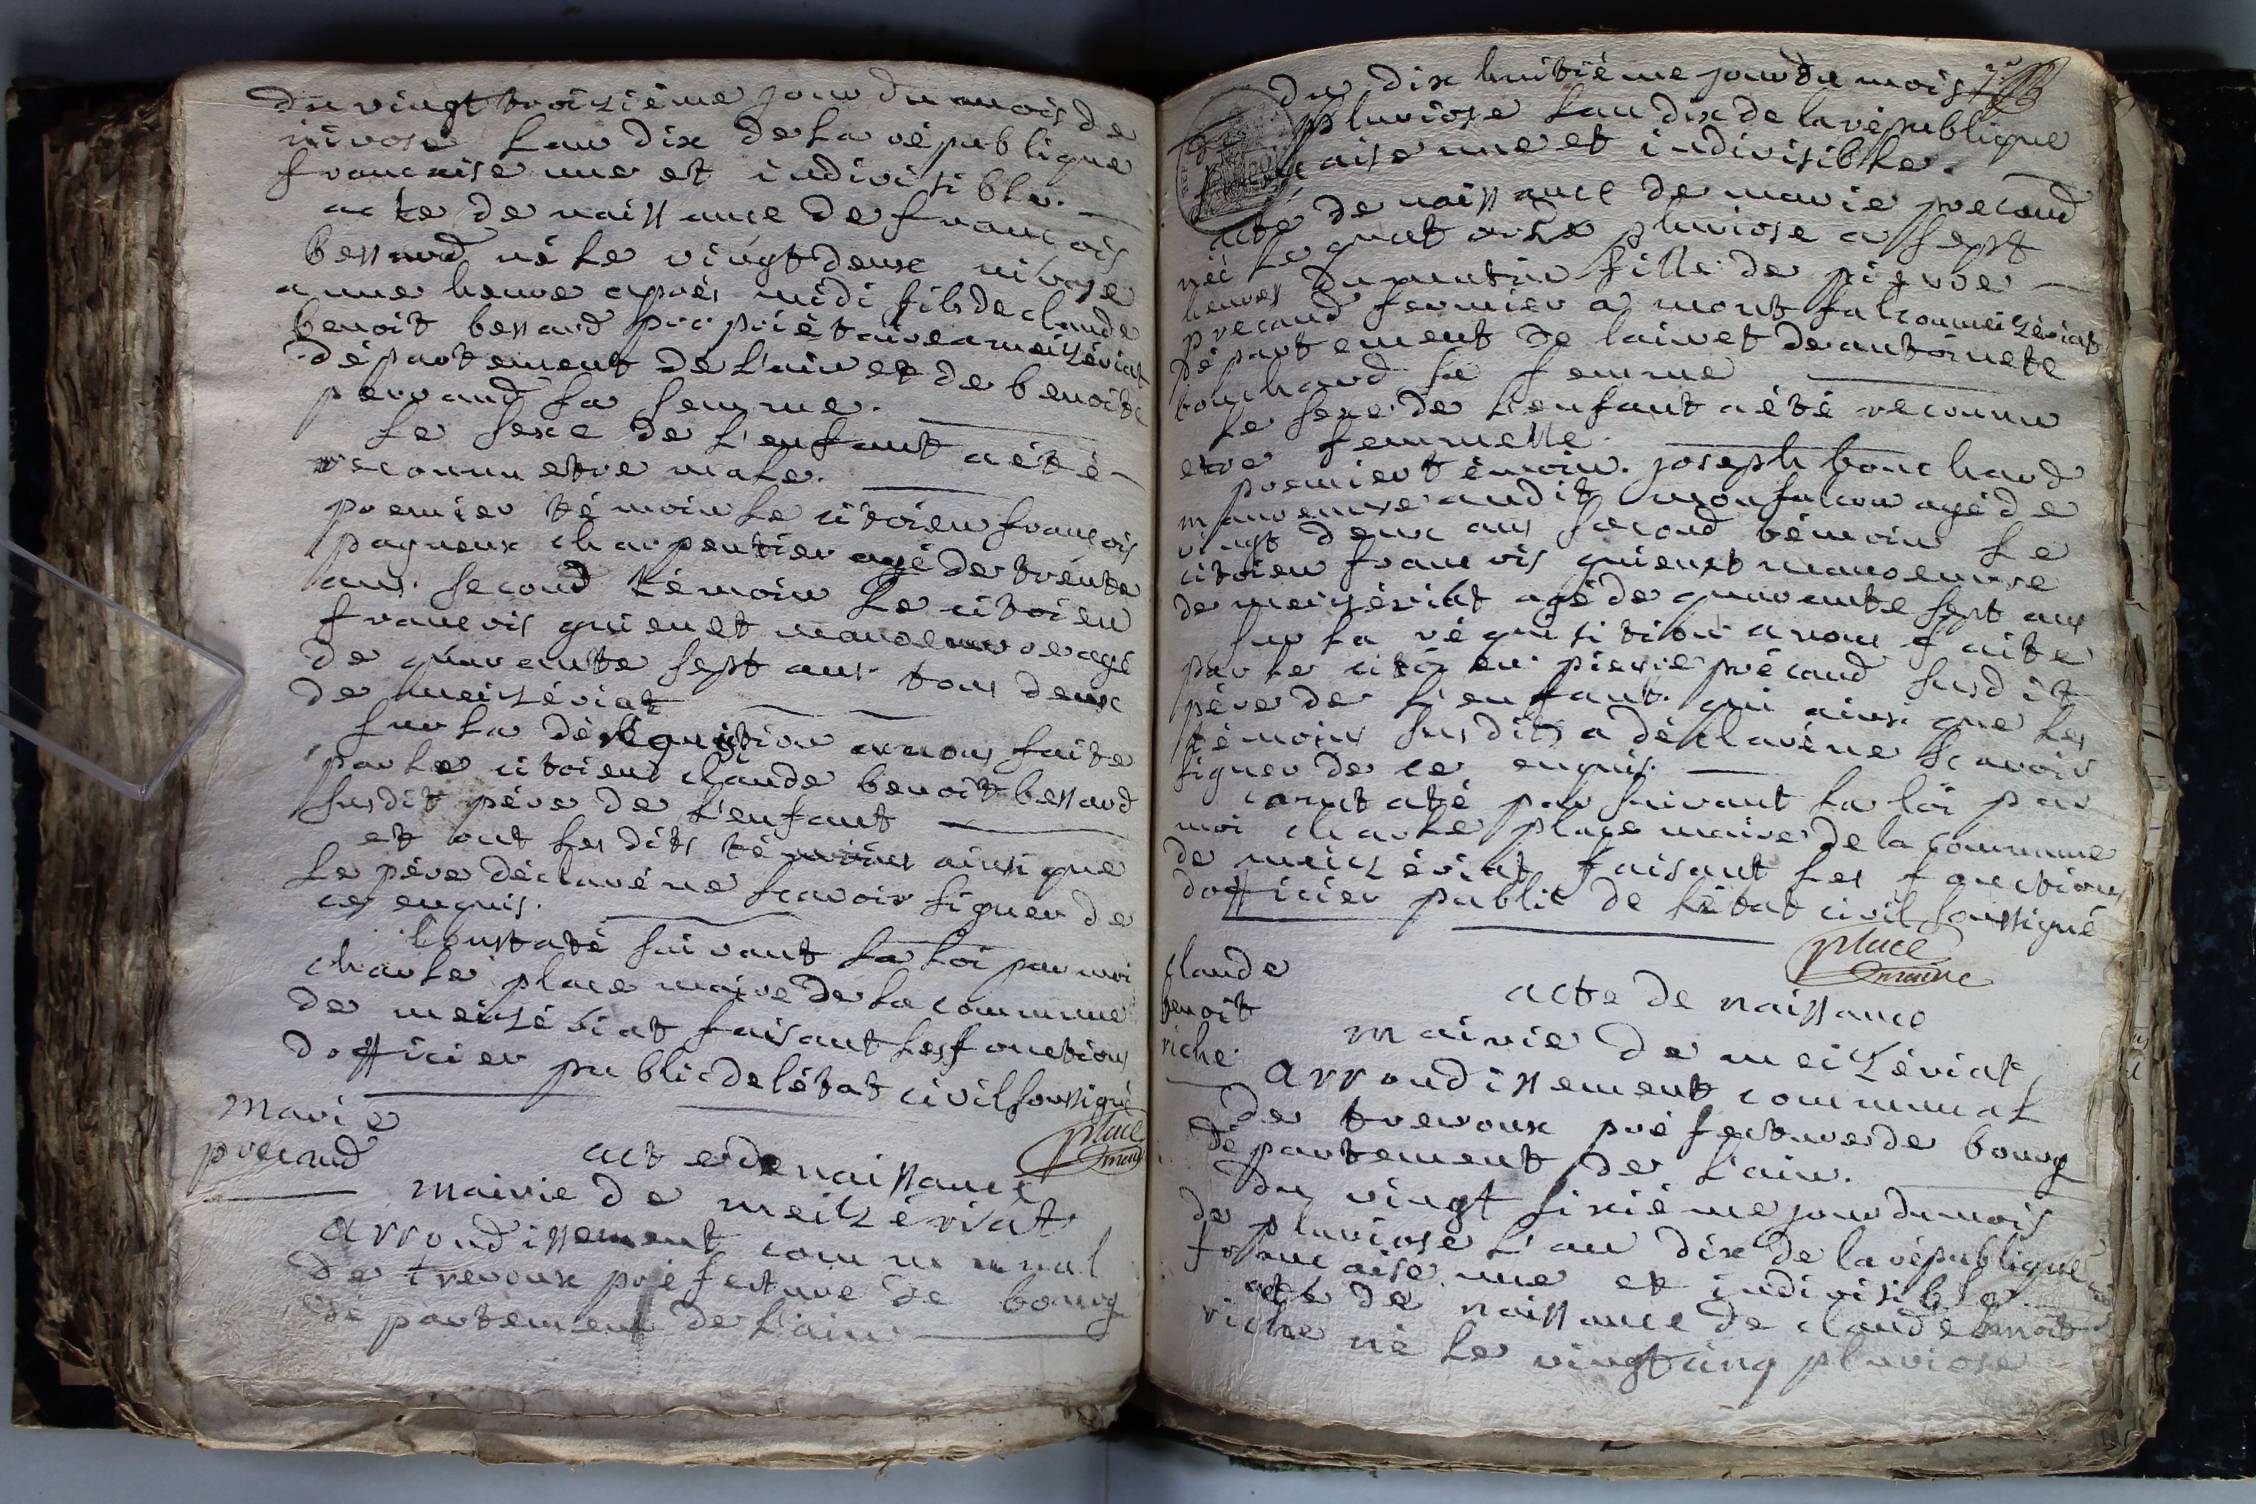 du vingt troisiéme jour du mois de
nivose lan dix de la république
francaise une et indivisible.
acte de naissance de francois
bessard né le vingt deux nivose
a une heure aprés midi fils de claude
benoit bessard propriétaire a meizériat
département de l'ain et de benoite
perraud sa femme.
le sexe de l'enfant a été
reconnu etre male.
premier témoin le citoien françois
pagneux charpentier agé de trente
ans. second témoin le citoien
francois guienet manoeuvre agé
de quarente sept ans tous deux
de meizériat
sur la réquition a nous faite
par le citoien claude benoit bessard
susdit pére de l'enfant
et ont les dits témoins ainsi que
le pére déclaré ne scavoir signer de
ce enquis.
Constaté suivant la loi par moi
charle place maire de la commune
de meizériat faisant les fonctions
dofficier public de l'état civil soussigné
place
maire
marie
precaud
acte de naissance
mairie de meilzériat
arrondissement communal
de trevoux préfecture de bourg
département de l'ain
du dix huitiéme jour du mois
pluviose l'an dix de la république
francaise une et indivisible.
acte de naissance de marie precaud
néé le quatorze pluviose a sept
heures du matin fille de pierre
precaud fermier a montfalcon meizériat
département de lain et de antoinete
bouchard sa femme
le sexe de l'enfant a été reconnu
etre femmelle.
premier témoin. joseph bouchard
manoeuvre audit monfalcon agé de
vingt deux ans second témoin le
citoien francois guienet manoeuvre
de meizériat agé de quarente sept ans
sur la réquisition a nous faite
par le citoien pierre précaud susdit
pére de l'enfant. qui ainsi que les
témoins susdits a déclaré ne scavoir
signer de ce enquis.
constaté par suivant la loi par
moi charle place maire de la commune
de meizériat faisant les fonctions
dofficier public de l'état civil soussigné
place
maire
claude
benoit
riche
acte de naissance
mairie de meilzériat
arrondissement communal
de trevoux préfecture de bourg
département de l'ain.
du vingt sixiéme jour du mois
de pluviose l'an dix de la république
francaise une et indivisible.
acte de naissance de claude benoit
riche né le vingt cinq pluviose